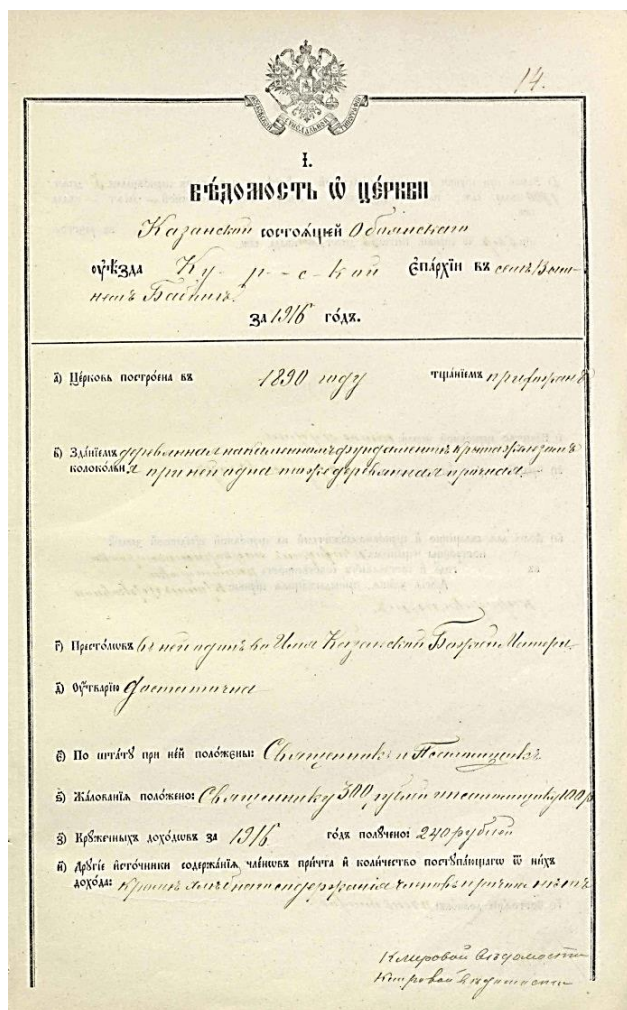 14.
МОСКОВСКОЙ СѴНОДАЛЬНОЙ ТИПОГРАФІИ
І.
ВѢ́ДОМОСТЬ Ѡ҆ ЦЕ́РКВИ
Казанской состоѧ́щей Обоянскаго
Оу҆ѣ́зда Ку-р-ской Є҆па́рхїи въ селѣ
немъ
За 1916 го́дъ.
а҃) Це́рковь постро́ена въ 1890 году тща́нїемъ прихожанъ
в҃) Зда́нїемъ деревянная на каменномъ фундаментѣ, крыта желѣзомъ
колоко́льнѧ при ней одна также деревянная прочная.
г҃) Престо́ловъ въ ней одинъ во Имя Казанской Божіей Матери.
д҃) Оу҆́тварїю достаточна
є҃) По шта́тꙋ при не́й поло́жены: Священникъ и Псаломщикъ
ѕ҃) Жа́лованїѧ поло́жено: Священнику 300 рублей и псаломщику 100 р
з҃) Крꙋ́жечныхъ дохо́довъ за 1916 го́дъ полꙋ́чено: 240 рублей
и҃) Дрꙋгі́е и҆сто́чники содержа́нїѧ чле́новъ при́чта и҆ коли́чество постꙋпа́ющагѡ ѿ ни́хъ
дохо́да: Кромѣ содержанія членовъ причта нѣтъ
Клировой вѣдомости
Клировой вѣдомости